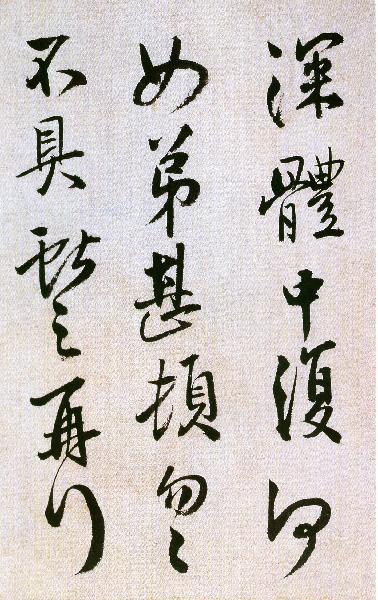 深體中復何
如弟甚頓勿〻
不具獻之再拜